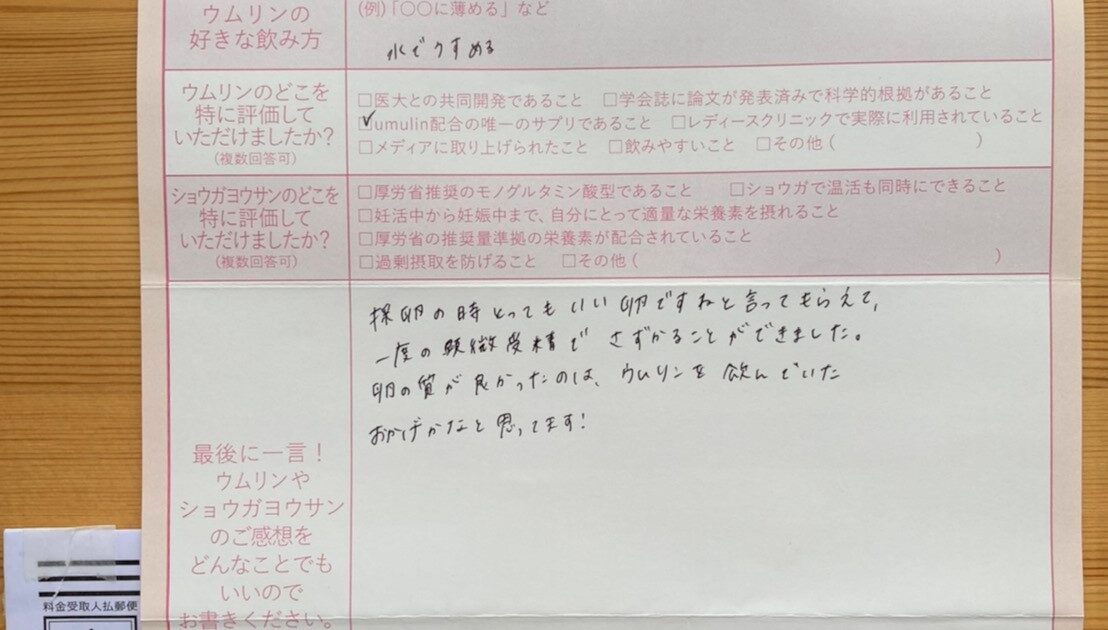 ウムリンの
好きな飲み方
(例)「〇〇に薄める」など
水でうすめる
ウムリンのどこを
特に評価して
いただけましたか?
(複数回答可)
□医大との共同開発であること □学会誌に論文が発表済みで科学的根拠があること
☑umulin配合の唯一のサプリであること □レディースクリニックで実際に利用されていること
□メディアに取り上げられたこと □飲みやすいこと □その他( )
ショウガヨウサンのどこを
特に評価して
いただけましたか?
(複数回答可)
□厚労省推奨のモノグルタミン酸型であること □ショウガで温活も同時にできること
□妊活中から妊娠中まで、自分にとって適量な栄養素を摂れること
□厚労省の推奨量準拠の栄養素が配合されていること
□過剰摂取を防げること □その他( )
最後に一言!
ウムリンや
ショウガヨウサン
のご感想を
どんなことでも
いいので
お書きください。
採卵の時とってもいい卵ですねと言ってもらえて、
一度の顕微受精でさずかることができました。
卵の質が良かったのは、ウムリンを飲んでいた
おかげかなと思ってます!
料金受取人払郵便